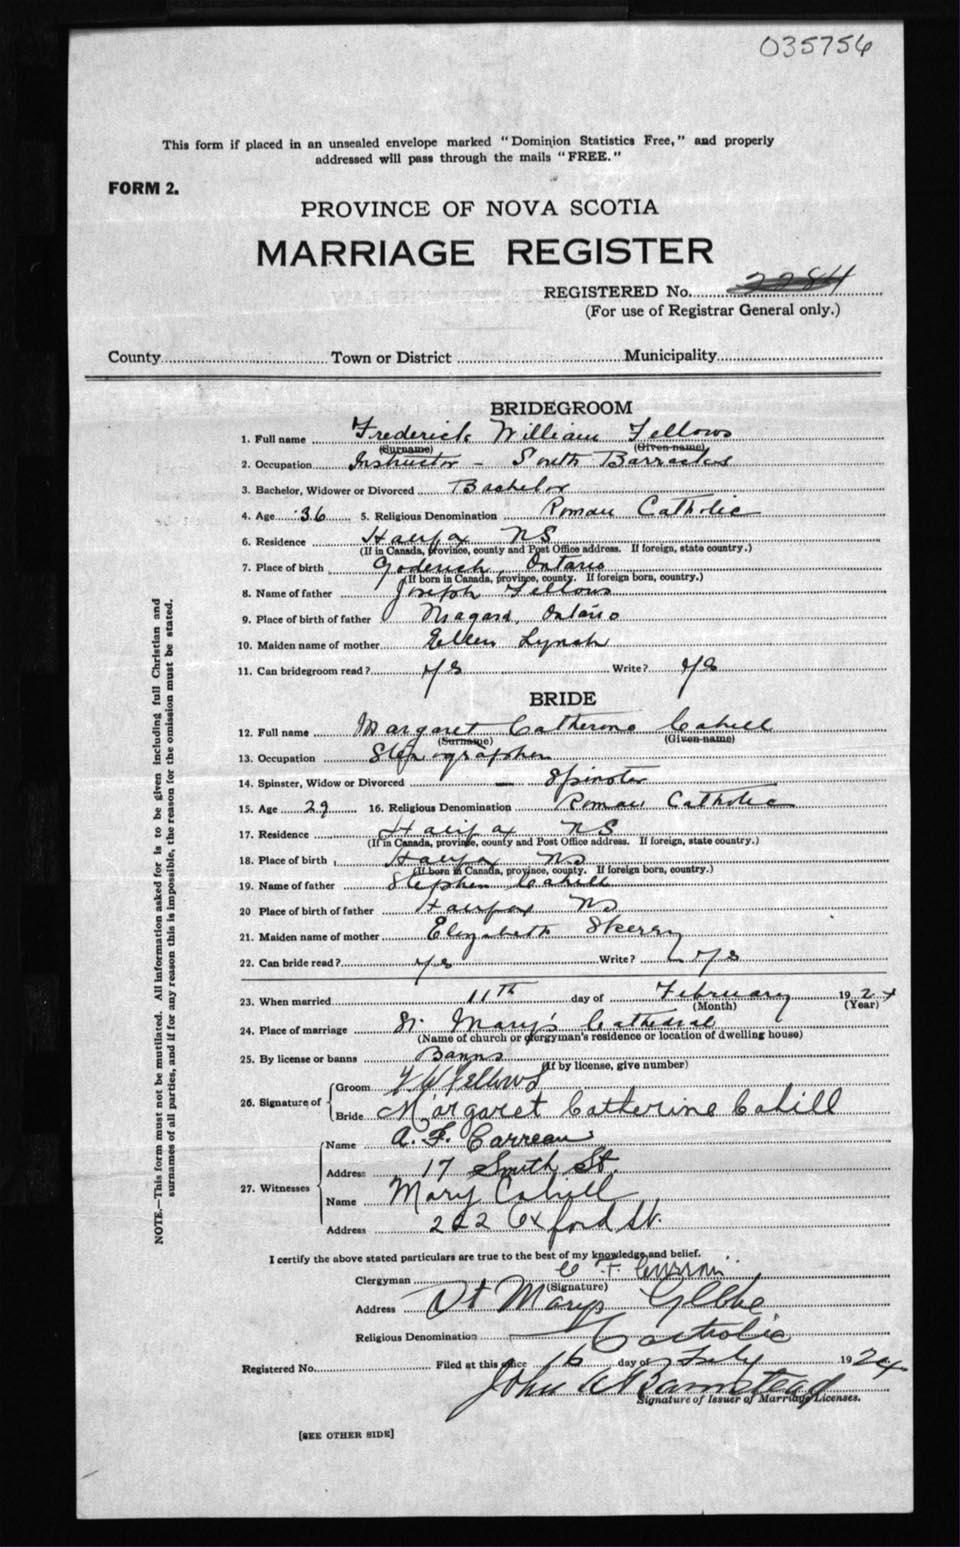 035756
This form if placed in an unsealed envelope marked "Dominion Statistics Free," and properly
addressed will pass through the mails "FREE."
FORM 2.
PROVINCE OF NOVA SCOTIA
MARRIAGE REGISTER
REGISTERED No. 2284
(For use of Registrar General only.)
County Town or District Municipality
BRIDEGROOM
1. Full name Frederick William Fellows
(Surname) (Given name)
2. Occupation Instructor - South Barracks
3. Bachelor, Widower or Divorced Bachelor
4. Age 36 5. Religious Denomination Roman Catholic
6. Residence Halifax NS
(If in Canada, province, county and Post Office address. If foreign, state country.)
7. Place of birth Goderich, Ontario
(If born in Canada, province, county. If foreign born, country.)
8. Name of father Joseph Fellows
9. Place of birth of father Niagara, Ontario
10. Maiden name of mother Ellen Lynch
11. Can bridegroom read? Yes Write? Yes
BRIDE
12. Full name Margaret Catherine Cahill
(Surname) (Given name)
13. Occupation Stenographer
14. Spinster, Widow or Divorced - Spinster
15. Age 29 16. Religious Denomination Roman Catholic
17. Residence Halifax NS
(If in Canada, province, county and Post Office address. If foreign, state country.)
18. Place of birth Halifax NS
(If born in Canada, province, county. If foreign born, country.)
19. Name of father Stephen Cahill
20 Place of birth of father Halifax NS
21. Maiden name of mother Elizabeth Skerry
22. Can bride read? Yes Write? Yes
23. When married 11th day of February 1924
(Month) (Year)
24. Place of marriage St. Mary's Cathedral
(Name of church or clergyman's residence or location of dwelling house)
25. By license or banns Banns
(If by license, give number)
26. Signature of Groom F. W. Fellows
Bride Margaret Catherine Cahill
27. Witnesses Name A. F. Carreau
Address 17 South St.
Name Mary Cahill
Address 222 Oxford St.
I certify the above stated particulars are true to the best of my knowledge and belief.
Clergyman C. F. Curran
(Signature)
Address St Marys Glebe
Religious Denomination Catholic
Registered No. Filed at this office 16 day of July 1924
John A Barnstead
Signature of Issuer of Marriage Licenses.
[SEE OTHER SIDE]
NOTE.—This form must not be mutilated. All information asked for is to be given including full Christian and
surnames of all parties, and if for any reason this is impossible, the reason for the omission must be stated.